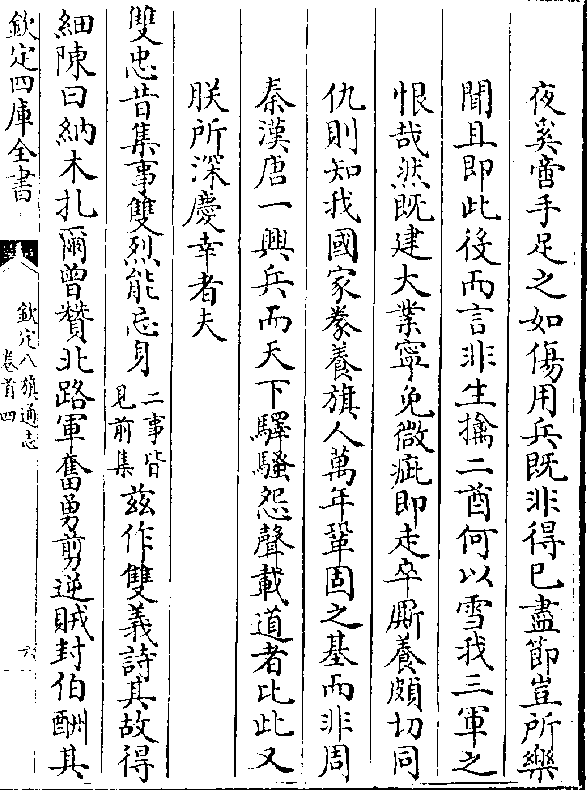 夜奚啻手足之如傷用兵既非得已盡節豈所樂
聞且即此後而言非生擒二酋何以雪我三軍之
恨哉然既建大業寧免微疵即走卒厮養頗切同
仇則知我國家豢養旗人萬年鞏固之基而非周
秦漢唐一興兵而天下驛騷怨聲載道者比此又
朕所深慶幸者夫
雙忠昔集事雙烈能忘身二事皆見前集兹作雙義詩其故得
細陳曰納木扎爾曾贊北路軍奮勇剪逆賊封伯酬其
欽定四庫全書
欽定八旗通志
卷首四
六